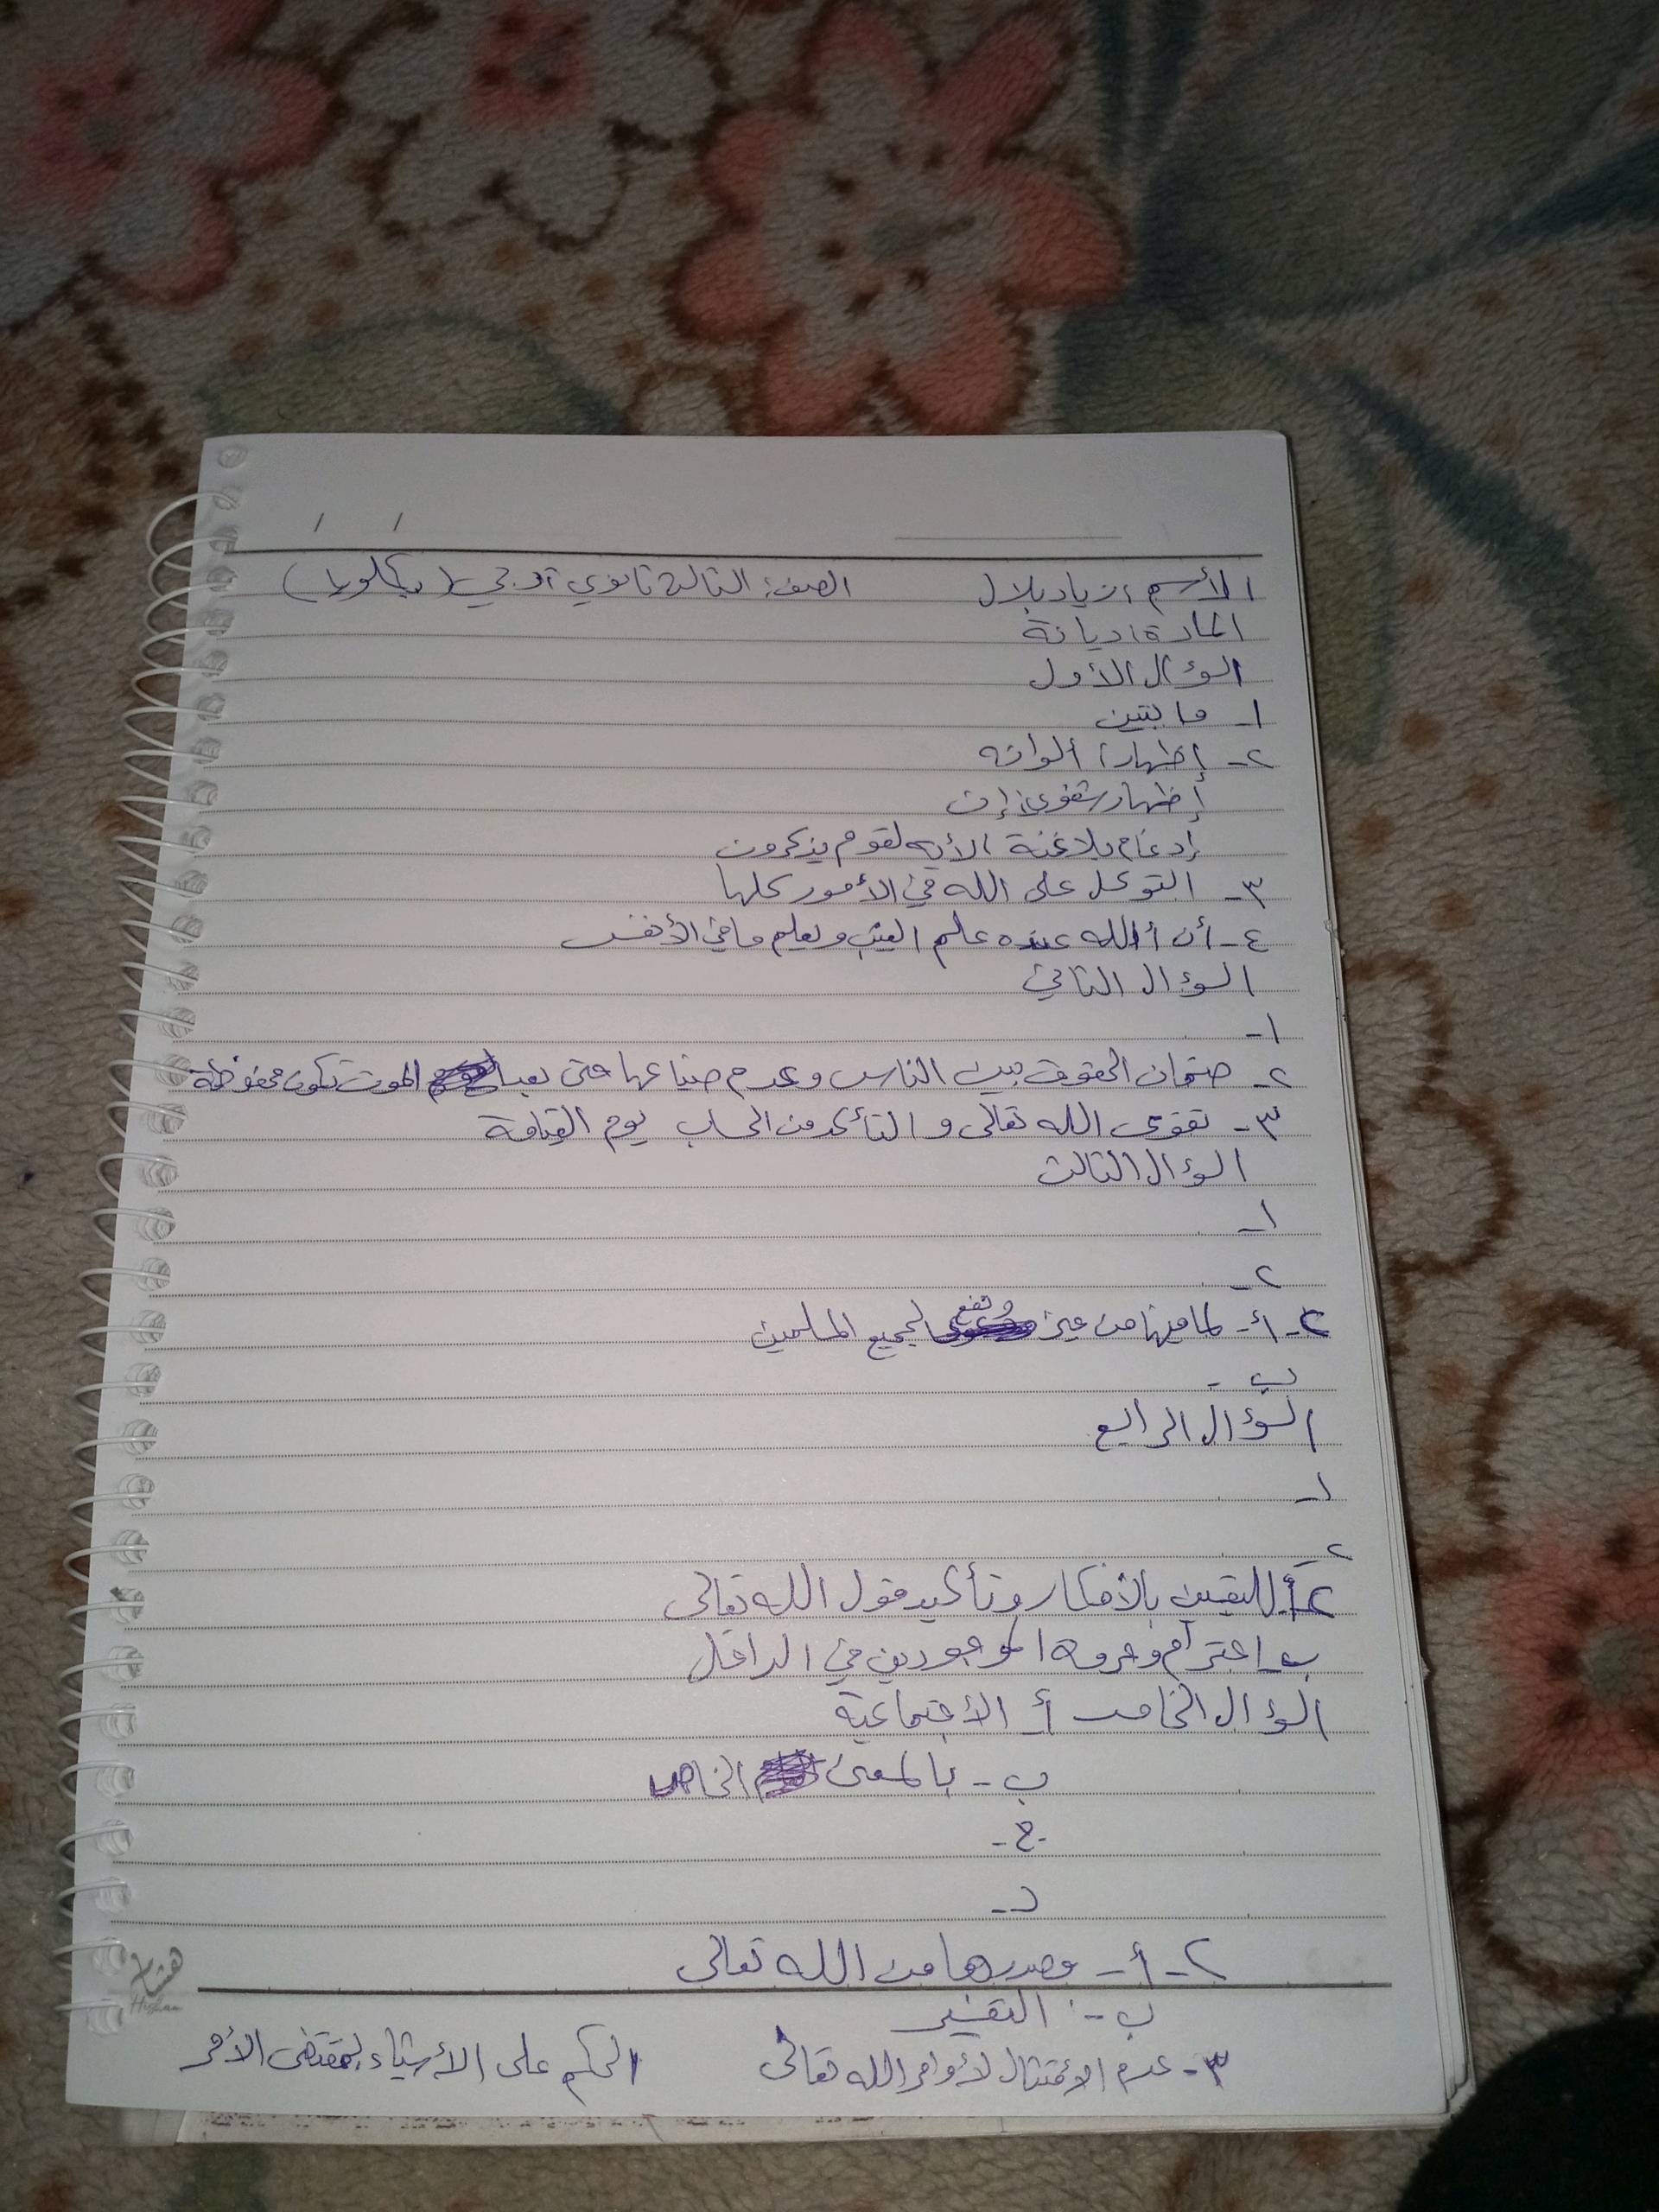 الأسم: زياد بلال الصف: الثالث ثانوي أدبي (بكلوريا)
المادة: ديانة
السؤال الأول
١-
٢- إظهار: ألوانه
إظهار شفوي: إن
إدغام بلا غنة لأية لقوم يذكرون
٣- التوكل على الله في الأمور كلها
٤- أن الله عنده علم الغيب ويعلم ما في الأنفس
السؤال الثاني
١-
٢- ضمان الحقوق بين الناس وعدم ضياعها حتى بعد الموت تكون محفوظة
٣- تقوى الله تعالى و التأكد من الحساب يوم القيامة
السؤال الثالث
١-
٢-
٢- أ- لما فيها من خير ونفع لجميع المسلمين
ب -
السؤال الرابع
١-
٢
٢- أ- لليقين بالأفكار وتأكيد قول الله تعالى
ب- احترام وحرمة الموجودين في الداخل
السؤال الخامس أ- الأجتماعية
ب- بالمعنى الخاص
ج-
د-
٢- أ- مصدرها من الله تعالى
ب-: التفسير
٣- عدم الأمتثال لأوامر الله تعالى الحكم على الأشياء بمقتضى الأمر
هشام
Hisham